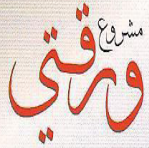 مشروع
ورقتي